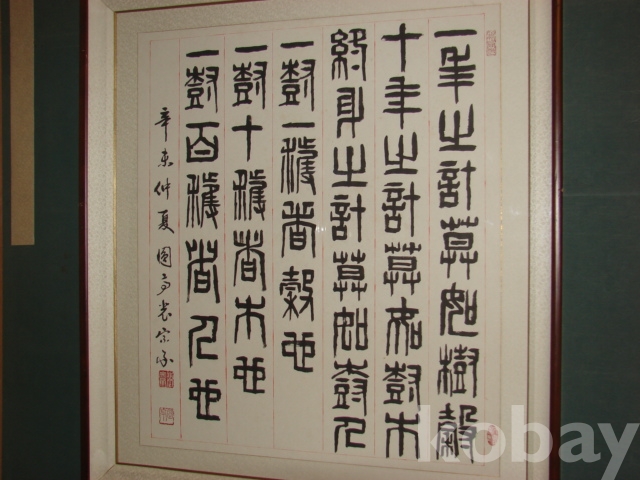 一年之計莫如樹穀
十年之計莫如樹木
終身之計莫如樹人
一樹一穫者穀也
一樹十穫者木也
一樹百穫者人也
辛未仲夏
kobay